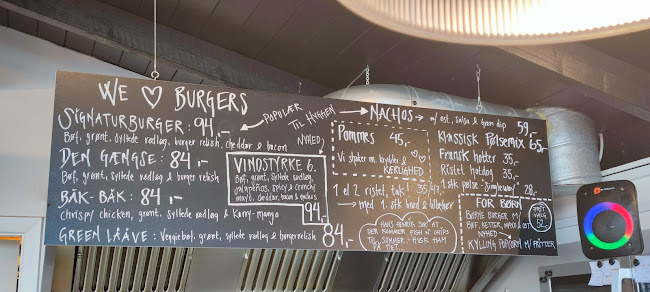 WE ♡ BURGERS
SIGNATURBURGER: 94,-
Bøf, grønt, syltede rødløg, burger relish, cheddar & bacon
DEN GÆNGSE: 84,-
Bøf, grønt, syltede rødløg & burger relish
BÅK-BÅK: 84,-
Chrispy chicken, grønt, syltede rødløg & karry-mango
GREEN LÅÅVE: Veggiebøf, grønt, syltede rødløg & burgerrelish 84,-
POPULÆR
NYHED
VINDSTYRKE 6.
Bøf, grønt, syltede rødløg,
jalapeños, spicy & crunchy
mayo, cheddar, bacon &
94,-
TIL HYGGEN
NACHOS → m/ ost, salsa & creme dip 59,-
Pommes 45,-
Vi støver m. krydderi &
KÆRLIGHED
Klassisk Pølsemix 65,-
Fransk hotter 35,-
Ristet hotdog 35,-
1 el 2 ristet, tak! 35/47
→ med 1 stk brød & tilbehør
1 stk pølse - "singleway"! 28,-
HANS HENRIK SIGER AT
DER KOMMER FISH N' CHIPS
TIL SOMMER - HUSK HAM
PÅ DET...
FOR BØRN
BØRNE BURGER M/
BØF, KETTER, MAYO & OST
NYHED
KYLLING POPCORN M/ FRITTER
FRIT
VALG
52,-